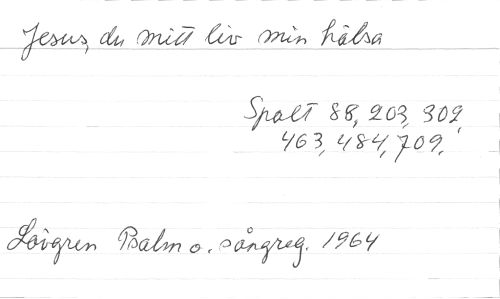 Jesus, du mitt liv min hälsa
Spalt 88, 203, 302,
463, 484, 709.
Lövgren Psalm o. sångreg. 1964